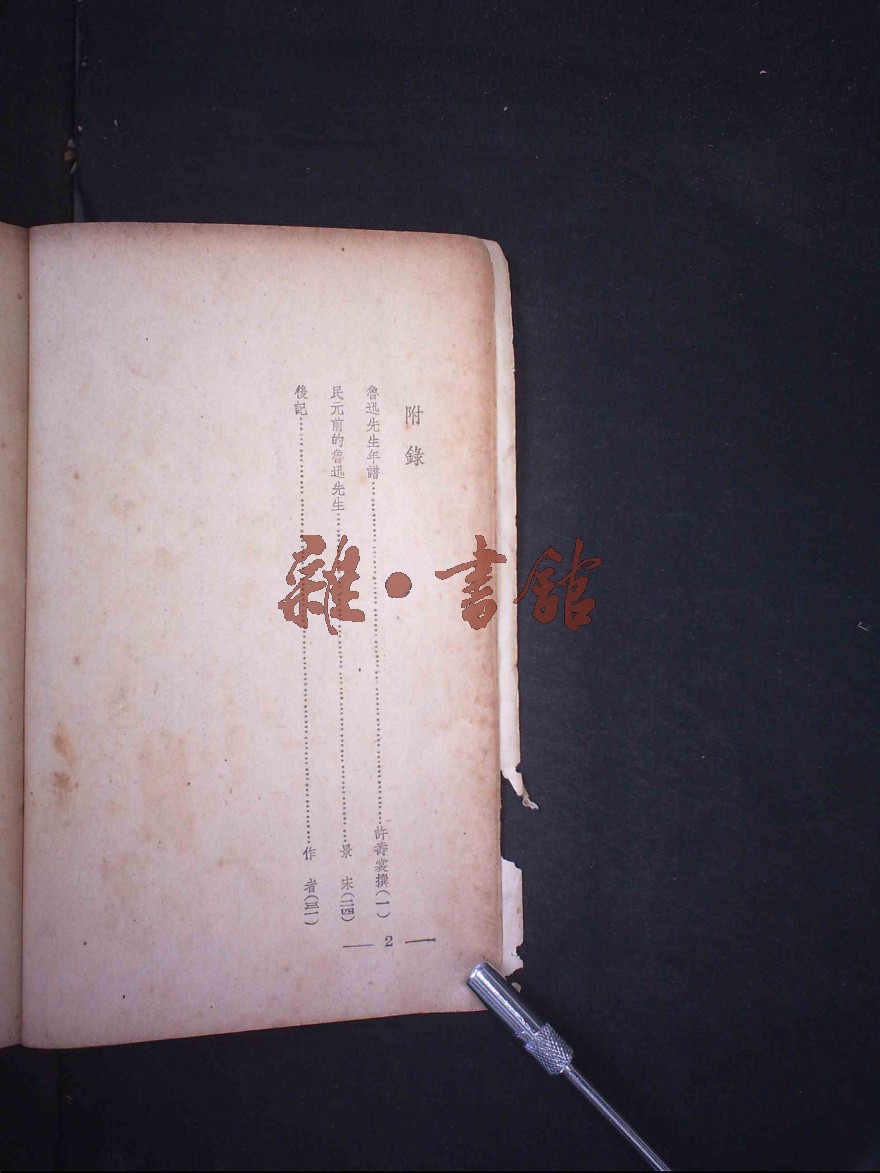 附錄
魯迅先生年譜……許壽裳撰(一)
民元前的魯迅先生……景宋(二四)
後記……作者(三一)
— 2 —
雜·書館